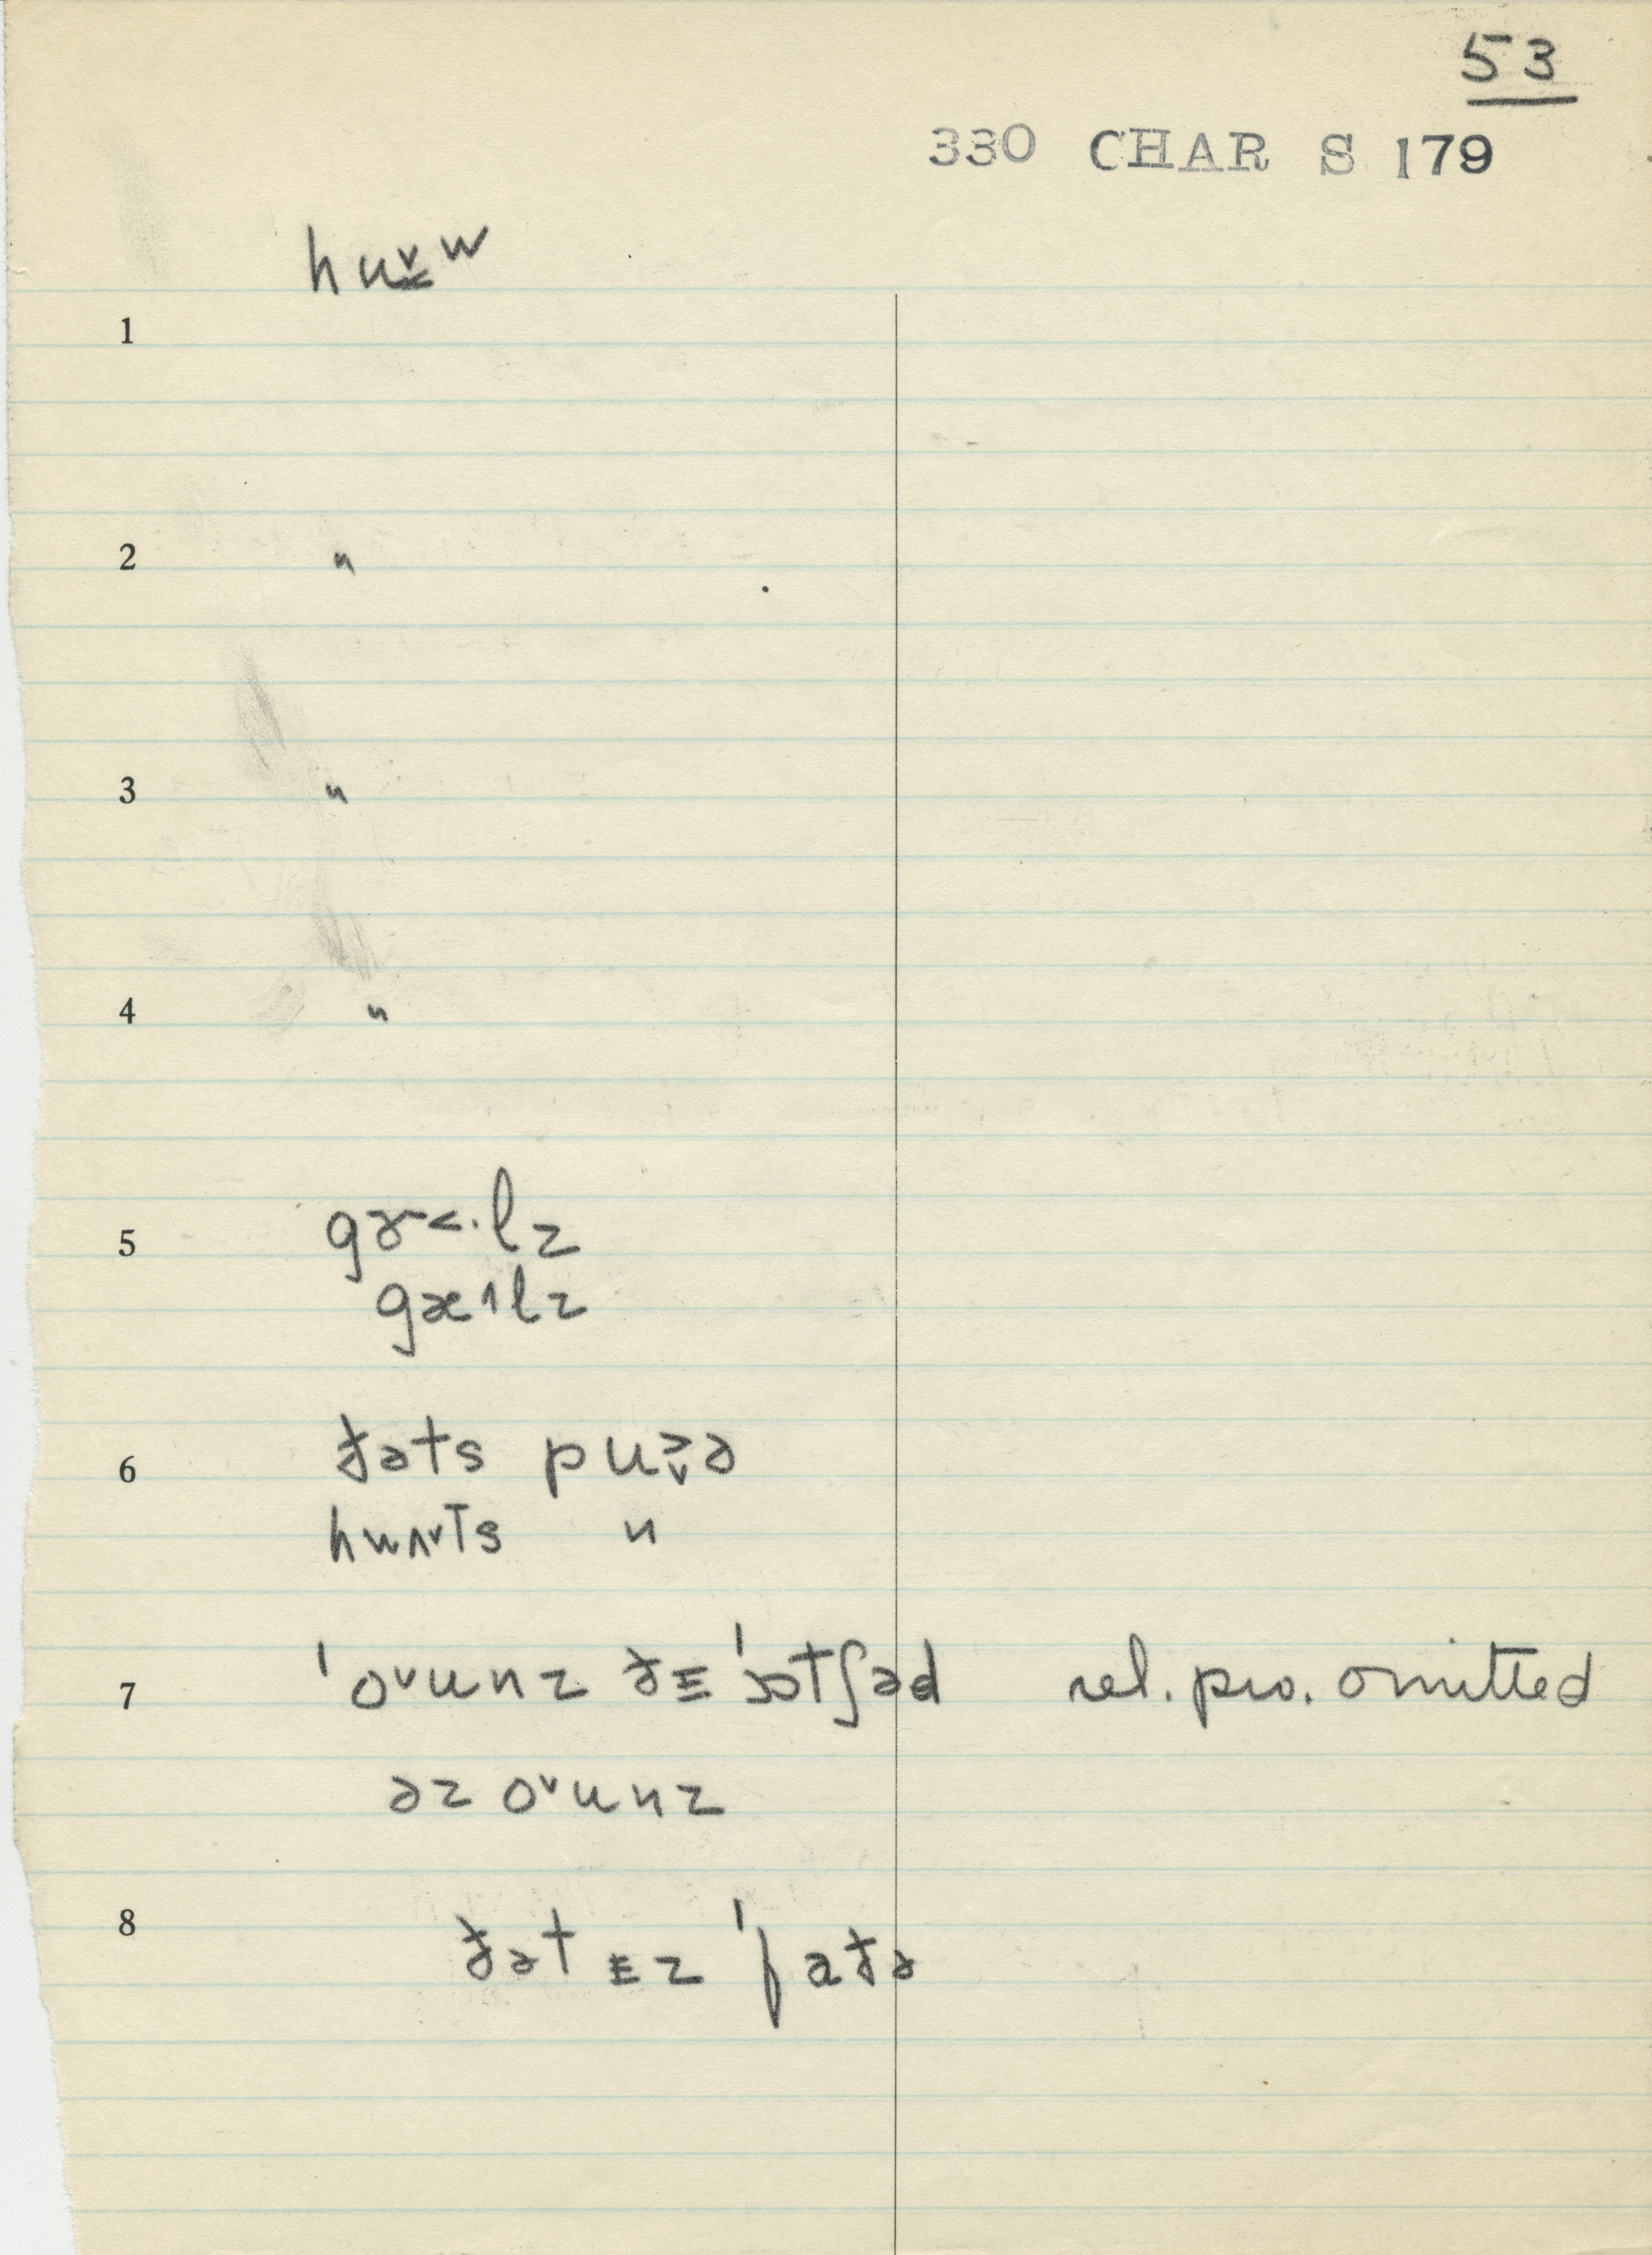 53
330 CHAR S 179
hu̬w
1
2 "
3 "
4 "
5 gɚ˂·lz
gæ˄lz
6 ðəts pu˃̬ə
hwʌ˅ts "
7 ˈo˅unz ðɪ ˈɔtʃəd rel. pro. omitted
əz o˅unz
8 ðət ɪz ˈfaðə